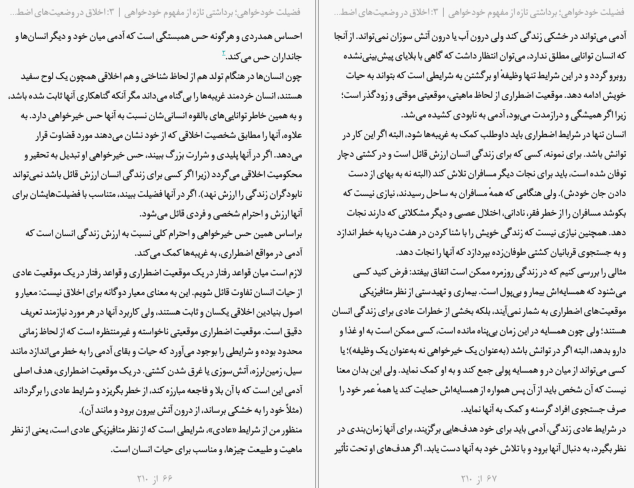 فضیلت خودخواهی؛ برداشتی تازه از مفهوم خودخواهی | ۳: اخلاق در وضعیت‌های اضط...
احساس همدردی و هرگونه حس همبستگی است که آدمی میان خود و دیگر انسان‌ها و
جانداران حس می‌کند.
چون انسان‌ها در هنگام تولد هم از لحاظ شناختی و هم اخلاقی همچون یک لوح سفید
هستند، انسان خردمند غریبه‌ها را بی‌گناه می‌داند مگر آنکه گناهکاری آنها ثابت شده باشد،
و به همین خاطر توانایی‌های بالقوه انسانی‌شان نسبت به آنها حس خیرخواهی دارد. به
علاوه، آنها را مطابق شخصیت اخلاقی که از خود نشان می‌دهند مورد قضاوت قرار
می‌دهد. اگر در آنها پلیدی و شرارت بزرگ ببیند، حس خیرخواهی او تبدیل به تحقیر و
محکومیت اخلاقی می‌گردد (زیرا اگر کسی برای زندگی انسان ارزش قائل باشد نمی‌تواند
نابودگران زندگی را ارزش نهد). اگر در آنها فضیلت ببیند، متناسب با فضیلت‌هایشان برای
آنها ارزش و احترام شخصی و فردی قائل می‌شود.
براساس همین حس خیرخواهی و احترام کلی نسبت به ارزش زندگی انسان است که
آدمی در مواقع اضطراری، به غریبه‌ها کمک می‌کند.
لازم است میان قواعد رفتار در یک موقعیت اضطراری و قواعد رفتار در یک موقعیت عادی
از حیات انسان تفاوت قائل شویم. این به معنای معیار دوگانه برای اخلاق نیست: معیار و
اصول بنیادین اخلاقی یکسان و ثابت هستند، ولی کاربرد آنها در هر مورد نیازمند تعریف
دقیق است. موقعیت اضطراری موقعیتی ناخواسته و غیرمنتظره است که از لحاظ زمانی
محدود بوده و شرایطی را بوجود می‌آورد که حیات و بقای آدمی را به خطر می‌اندازد مانند
سیل، زمین‌لرزه، آتش‌سوزی یا غرق شدن کشتی. در یک موقعیت اضطراری، هدف اصلی
آدمی این است که با آن بلا و فاجعه مبارزه کند، از خطر بگریزد و شرایط عادی را برگرداند
(مثلاً خود را به خشکی برساند، از درون آتش بیرون برود و مانند آن).
منظور من از شرایط «عادی»، شرایطی است که از نظر متافیزیکی عادی است، یعنی از نظر
ماهیت و طبیعت چیزها، و مناسب برای حیات انسان است.
۶۶ از ۲۱۰
فضیلت خودخواهی؛ برداشتی تازه از مفهوم خودخواهی | ۳: اخلاق در وضعیت‌های اضط...
آدمی می‌تواند در خشکی زندگی کند ولی درون آب یا درون آتش سوزان نمی‌تواند. از آنجا
که انسان توانایی مطلق ندارد، می‌توان انتظار داشت که گاهی با بلایای پیش‌بینی‌نشده
روبرو گردد و در این شرایط تنها وظیفهٔ او برگشتن به شرایطی است که بتواند به حیات
خویش ادامه دهد. موقعیت اضطراری از لحاظ ماهیتی، موقعیتی موقتی و زودگذر است؛
زیرا اگر همیشگی و درازمدت می‌بود، آدمی به نابودی کشیده می‌شد.
انسان تنها در شرایط اضطراری باید داوطلب کمک به غریبه‌ها شود، البته اگر این کار در
توانش باشد. برای نمونه، کسی که برای زندگی انسان ارزش قائل است و در کشتی دچار
توفان شده است، باید برای نجات دیگر مسافران تلاش کند (البته نه به بهای از دست
دادن جان خودش). ولی هنگامی که همهٔ مسافران به ساحل رسیدند، نیازی نیست که
بکوشد مسافران را از خطر فقر، نادانی، اختلال عصبی و دیگر مشکلاتی که دارند نجات
دهد. همچنین نیازی نیست که زندگی خویش را با شنا کردن در هفت دریا به خطر اندازد
و به جستجوی قربانیان کشتی طوفان‌زده بپردازد که آنها را نجات دهد.
مثالی را بررسی کنیم که در زندگی روزمره ممکن است اتفاق بیفتد: فرض کنید کسی
می‌شنود که همسایه‌اش بیمار و بی‌پول است. بیماری و تهیدستی از نظر متافیزیکی
موقعیت‌های اضطراری به شمار نمی‌آیند، بلکه بخشی از خطرات عادی برای زندگی انسان
هستند؛ ولی چون همسایه در این زمان بی‌پناه مانده است، کسی ممکن است به او غذا و
دارو بدهد، البته اگر در توانش باشد (به‌عنوان یک خیرخواهی نه به‌عنوان یک وظیفه)؛ یا
کسی می‌تواند از میان در و همسایه پولی جمع کند و به او کمک نماید. ولی این بدان معنا
نیست که آن شخص باید از آن پس همواره از همسایه‌اش حمایت کند یا همهٔ عمر خود را
صرف جستجوی افراد گرسنه و کمک به آنها نماید.
در شرایط عادی زندگی، آدمی باید برای خود هدف‌هایی برگزیند، برای آنها زمان‌بندی در
نظر بگیرد، به دنبال آنها برود و با تلاش خود به آنها دست یابد. اگر هدف‌های او تحت تأثیر
۶۷ از ۲۱۰